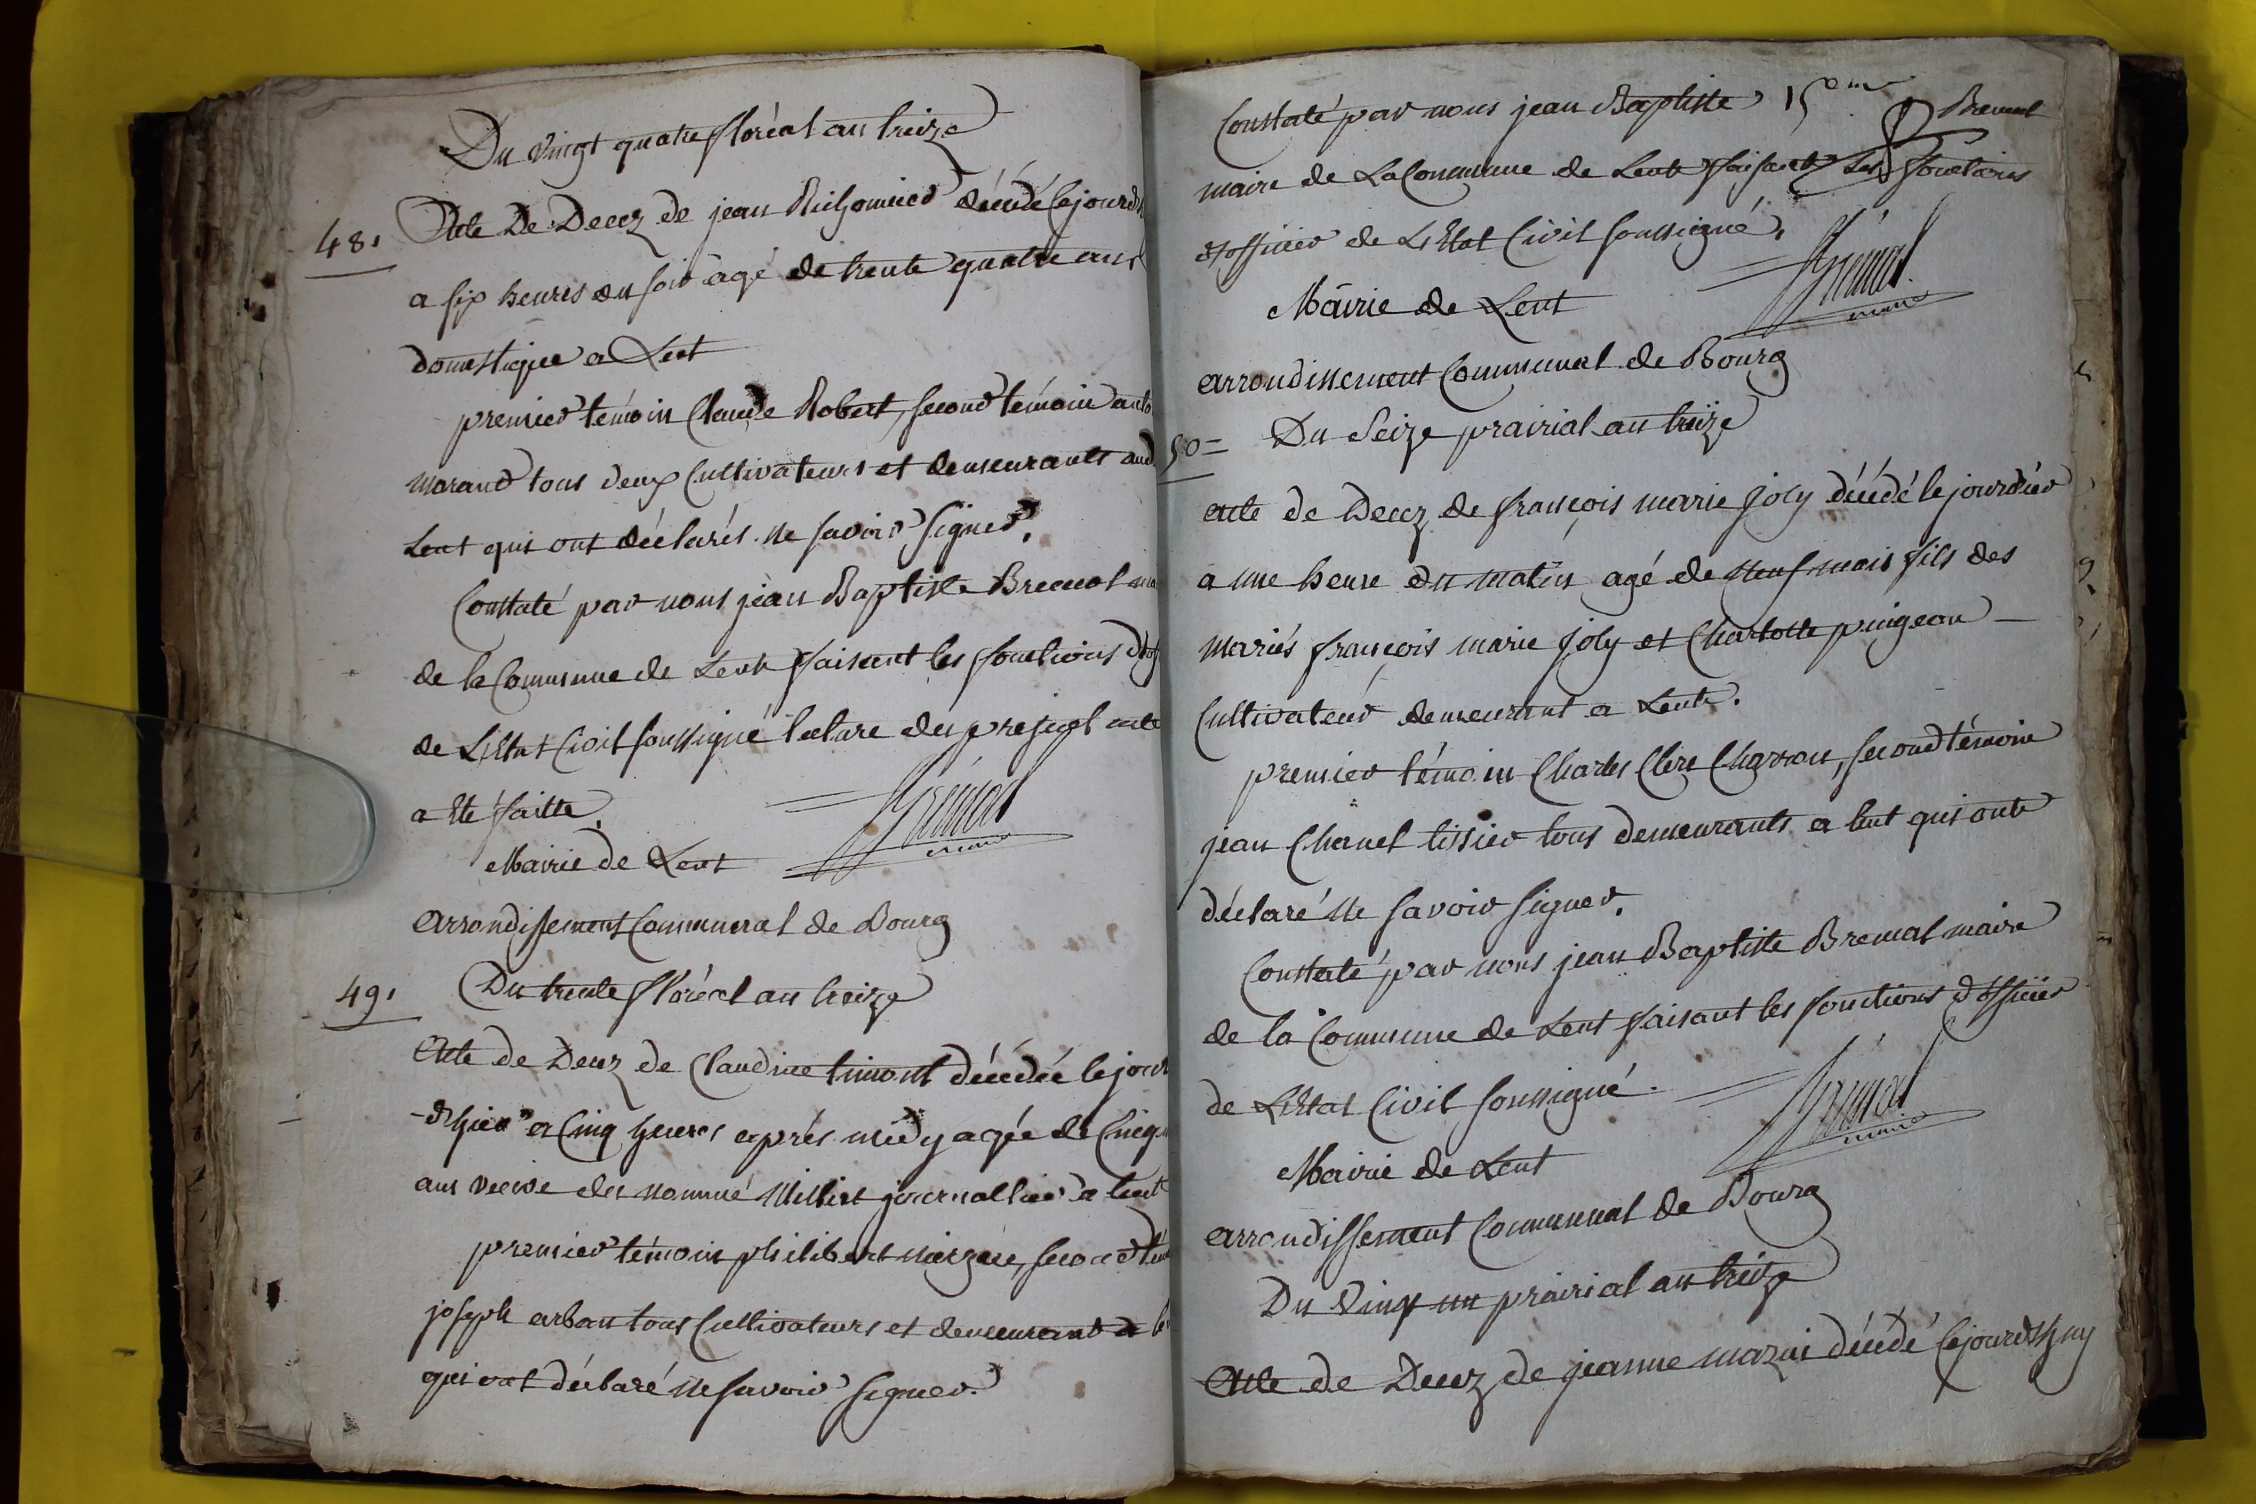 Du vingt quatre floréal an treize
48. Acte De Decez de jean décédé cejourd
a six heures du soir agé de trente quatre ans
domestique a Lent
premier témoin Claude Robert, second témoin anto
morand tous deux Cultivateurs et demeurants aud
Lent qui ont déclarés ne savoir signer.
Constaté par nous jean Baptiste Bremal ma
de la Commune de Lent faisant les fonctions dof
de LEtat Civil soussigné lecture du present acte
a Eté faitte.
Bremal
maire
Mairie de Lent
arrondissement Communal de Bourg
49. Du trente floréal an treize
Acte de Decez de Claudine décédée le jour
d'hier a Cinq heures après midy agée de Cinq
ans veuve du nommé Millet journallier a Lent
premier témoin philibert second tém
joseph arban tous Cultivateurs et demeurant a Le
qui ont déclaré ne savoir signer.
Constaté par nous jean Baptiste 15eme Bremal
maire de La Commune de Lent faisant Les fonctions
d'officier de LEtat Civil soussigné.
Bremal
maire
Mairie de Lent
arrondissement Communal de Bourg
50= Du Seize prairial an treize
acte de Decez de françois marie joly décédé le jour d'hier
a une heure du matin agé de neuf mois fils des
mariés françois marie joly et Charlotte pingeon
Cultivateur demeurant a Lent.
premier témoin Charles Clère Charron, second témoin
jean Chanel tissier tous demeurants a lent qui ont
déclaré ne savoir signer.
Constaté par nous jean Baptiste Bremal maire
de la Commune de Lent faisant les fonctions d'officier
de LEtat Civil soussigné.
Bremal
maire
Mairie de Lent
arrondissement Communal de Bourg
Du vingt un prairial an treize
Acte de Decez de jeanne mazui décédé cejourd'huy